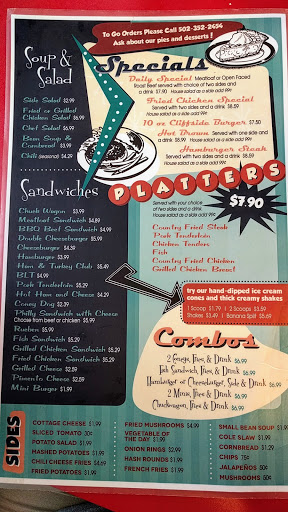 To Go Orders Please Call 502-352-2454
Ask about our pies and desserts !
Soup &
Salad
Side Salad $2.99
Fried or Grilled
Chicken Salad $6.99
Chef Salad $6.99
Bean Soup &
Cornbread $3.99
Chili (seasonal) $4.29
Specials
Daily Special Meatloaf or Open Faced
Roast Beef served with choice of two sides and
a drink $7.90 House salad as a side add 99¢
Fried Chicken Special
Served with two sides and a drink $8.59
House salad as a side add 99¢
10 oz Cliffside Burger $7.50
Hot Brown Served with one side and
a drink $8.99 House salad as a side add 99¢
Hamburger Steak
Served with two sides and a drink $8.59
House salad as a side add 99¢
Sandwiches
Chuck Wagon $3.99
Meatloaf Sandwich $4.99
BBQ Beef Sandwich $4.99
Double Cheeseburger $5.99
Cheeseburger $4.29
Hamburger $3.99
Ham & Turkey Club $5.49
BLT $4.29
Pork Tenderloin $5.29
Hot Ham and Cheese $4.29
Coney Dog $2.39
Philly Sandwich with Cheese
Choose from beef or chicken $5.99
Rueben $5.29
Fish Sandwich $5.29
Grilled Chicken Sandwich $5.29
Fried Chicken Sandwich $5.29
Grilled Cheese $2.99
Pimento Cheese $2.99
Mini Burger $1.99
PLATTERS
$7.90
Served with your choice
of two sides and a drink.
House salad as a side add 99¢
Country Fried Steak
Pork Tenderloin
Chicken Tenders
Fish
Country Fried Chicken
Grilled Chicken Breast
try our hand-dipped ice cream
cones and thick creamy shakes
1 Scoop $1.79 | 2 Scoops $3.59
Shakes $3.49 | Banana Split $5.69
Combos
2 Coneys, Fries, & Drink $6.99
Fish Sandwich, Fries & Drink $6.99
Hamburger or Cheeseburger, Side & Drink $6.99
2 Minis, Fries & Drink $6.99
Chuckwagon, Fries & Drink $6.99
SIDES
COTTAGE CHEESE $1.99
SLICED TOMATO 50¢
POTATO SALAD $1.99
MASHED POTATOES $1.99
CHILI CHEESE FRIES $4.69
FRIED POTATOES $1.99
FRIED MUSHROOMS $4.99
VEGETABLE OF
THE DAY $1.99
ONION RINGS $2.99
HASH ROUNDS $1.99
FRENCH FRIES $1.99
SMALL BEAN SOUP $1.99
COLE SLAW $1.99
CORNBREAD $1.29
CHIPS 75¢
JALAPEÑOS 50¢
MUSHROOMS 50¢